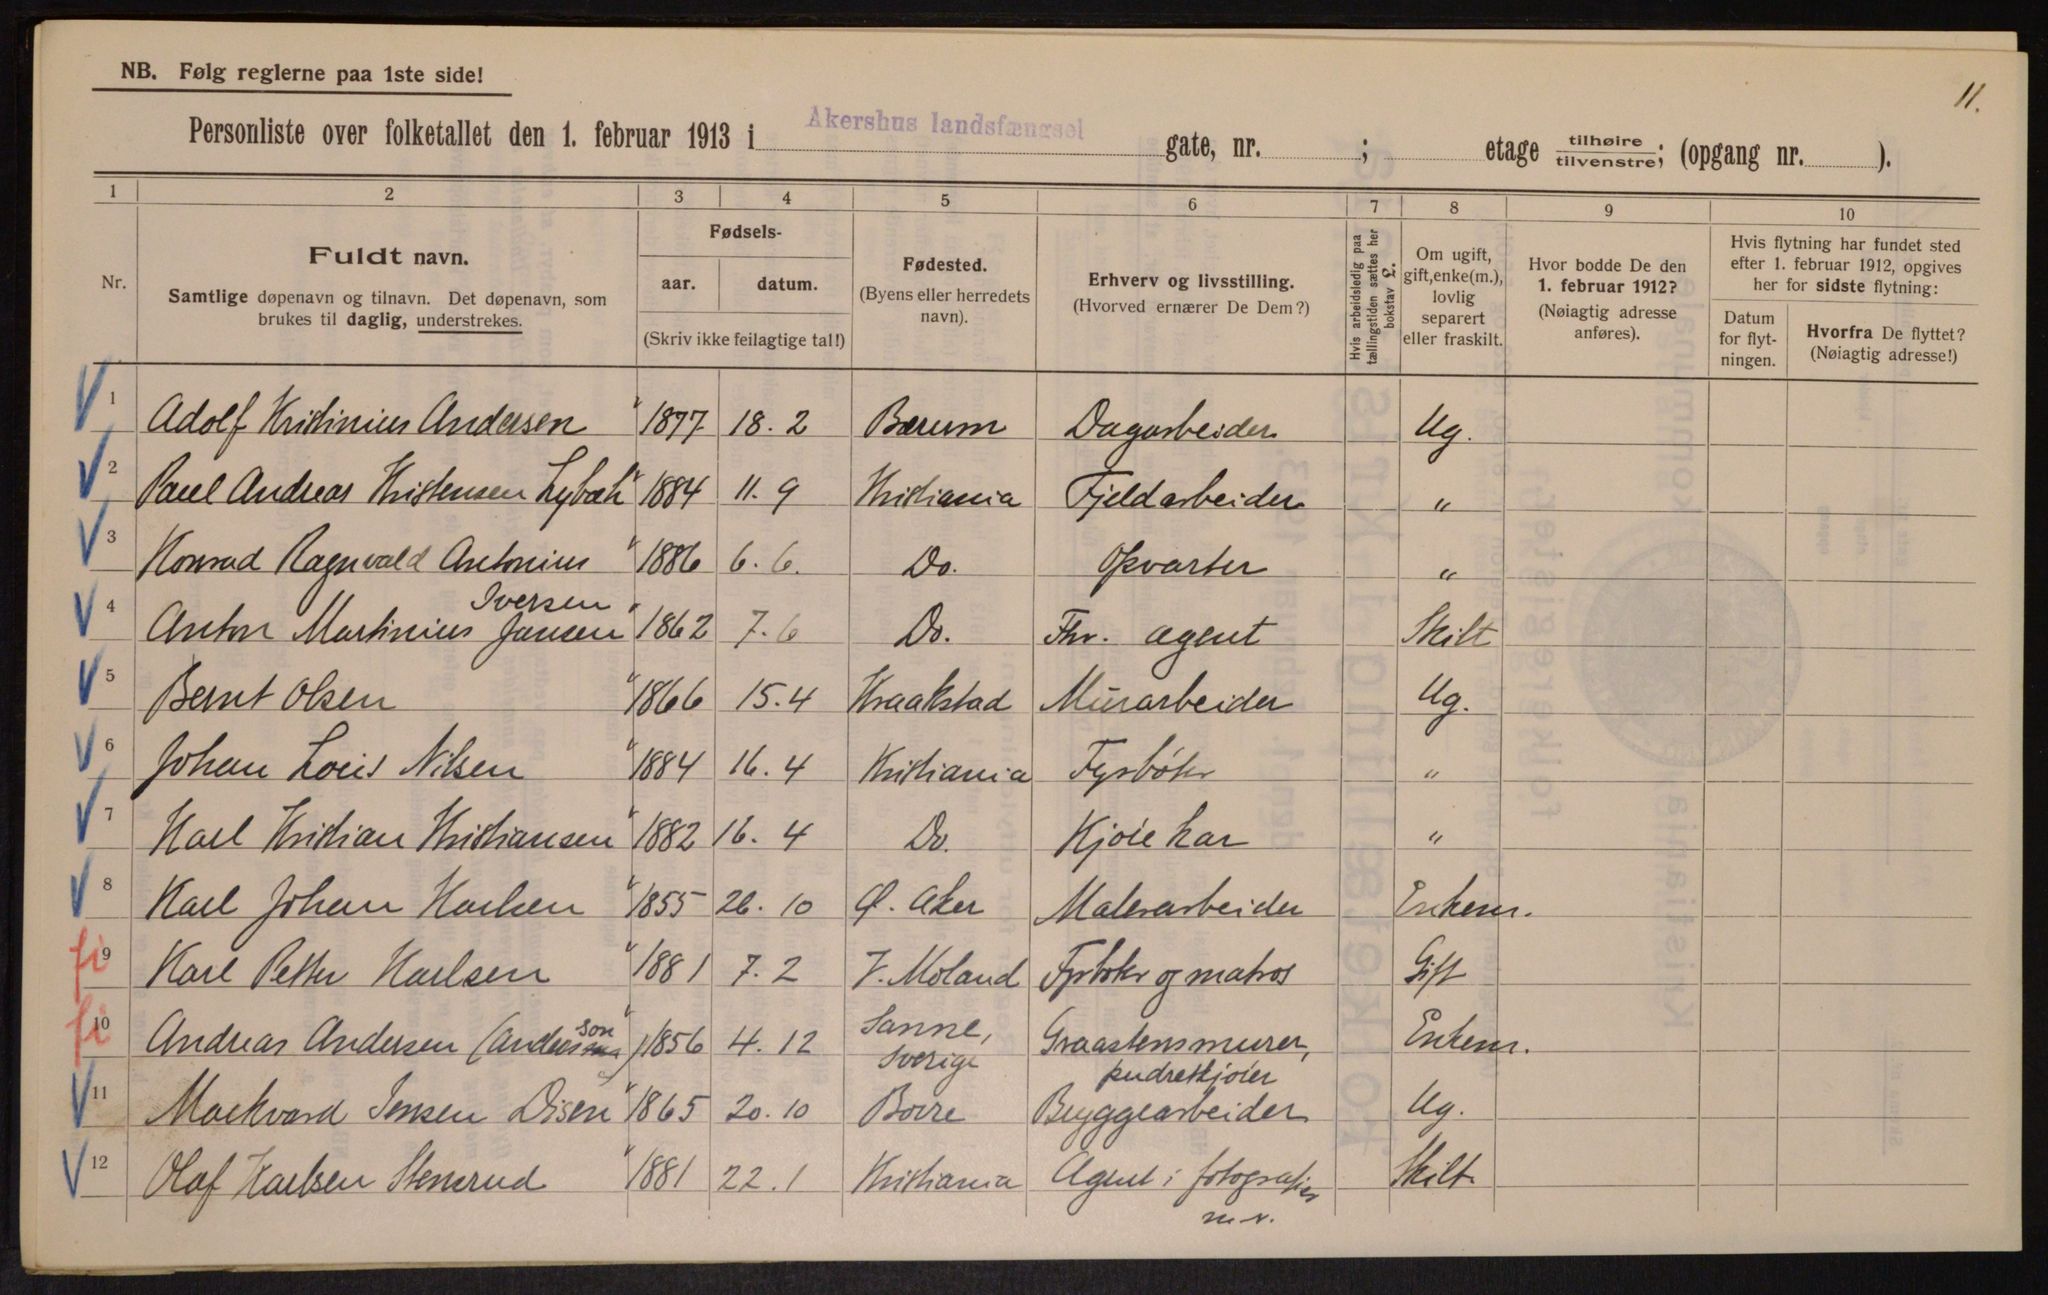 11.
NB. Følg reglerne paa 1ste side!
Personliste over folketallet den 1. februar 1913 i Akershus landsfængsel gate, nr. ; etage tilhøire tilvenstre; (opgang nr. ).
1 2 3 4 5 6 7 8 9 10
Nr.
Fuldt navn.
Samtlige døpenavn og tilnavn. Det døpenavn, som
brukes til daglig, understrekes.
Fødsels-
aar. datum.
(Skriv ikke feilagtige tal!)
Fødested.
(Byens eller herredets
navn).
Erhverv og livsstilling.
(Hvorved ernærer De Dem?)
Hvis arbeidsledig paa
tællingstiden sættes her
bokstav L.
Om ugift,
gift, enke(m.),
lovlig
separert
eller fraskilt.
Hvor bodde De den
1. februar 1912?
(Nøiagtig adresse
anføres).
Hvis flytning har fundet sted
efter 1. februar 1912, opgives
her for sidste flytning:
Datum
for flyt-
ningen.
Hvorfra De flyttet?
(Nøiagtig adresse!)
1 Adolf Kristinius Andersen 1877 18. 2 Bærum Dagarbeider Ug.
2 Paul Andreas Kristensen 1884 11. 9 Kristiania Fjeldarbeider "
3 Konrad Ragnvald Antonius 1886 6. 6. Do. Opvarter "
Iversen
4 Anton Martinius Jansen 1862 7. 6 Do. Fhv. agent Skilt
5 Bernt Olsen 1866 15. 4 Kraakstad Murarbeider Ug.
6 Johan Louis Nilsen 1884 16. 4 Kristiania Fyrbøter "
7 Karl Kristian Kristiansen 1882 16. 4 Do. Kjørekar "
8 Karl Johan Karlsen 1855 26. 10 Ø. Aker Malerarbeider Enkem.
fi 9 Karl Petter Karlsen 1881 7. 2 V. Moland Fyrbøter og matros Gift
fi 10 Andreas Andersen (Andersson) 1856 4. 12 Sanne, Graastensmurer, Enkem.
Sverige pudretkjører
11 Markvard Jensen Disen 1865 20. 10 Borre Bryggearbeider Ug.
12 Olaf Karlsen Stensrud 1881 22. 1 Kristiania Agent i fotografier Skilt
m. v.